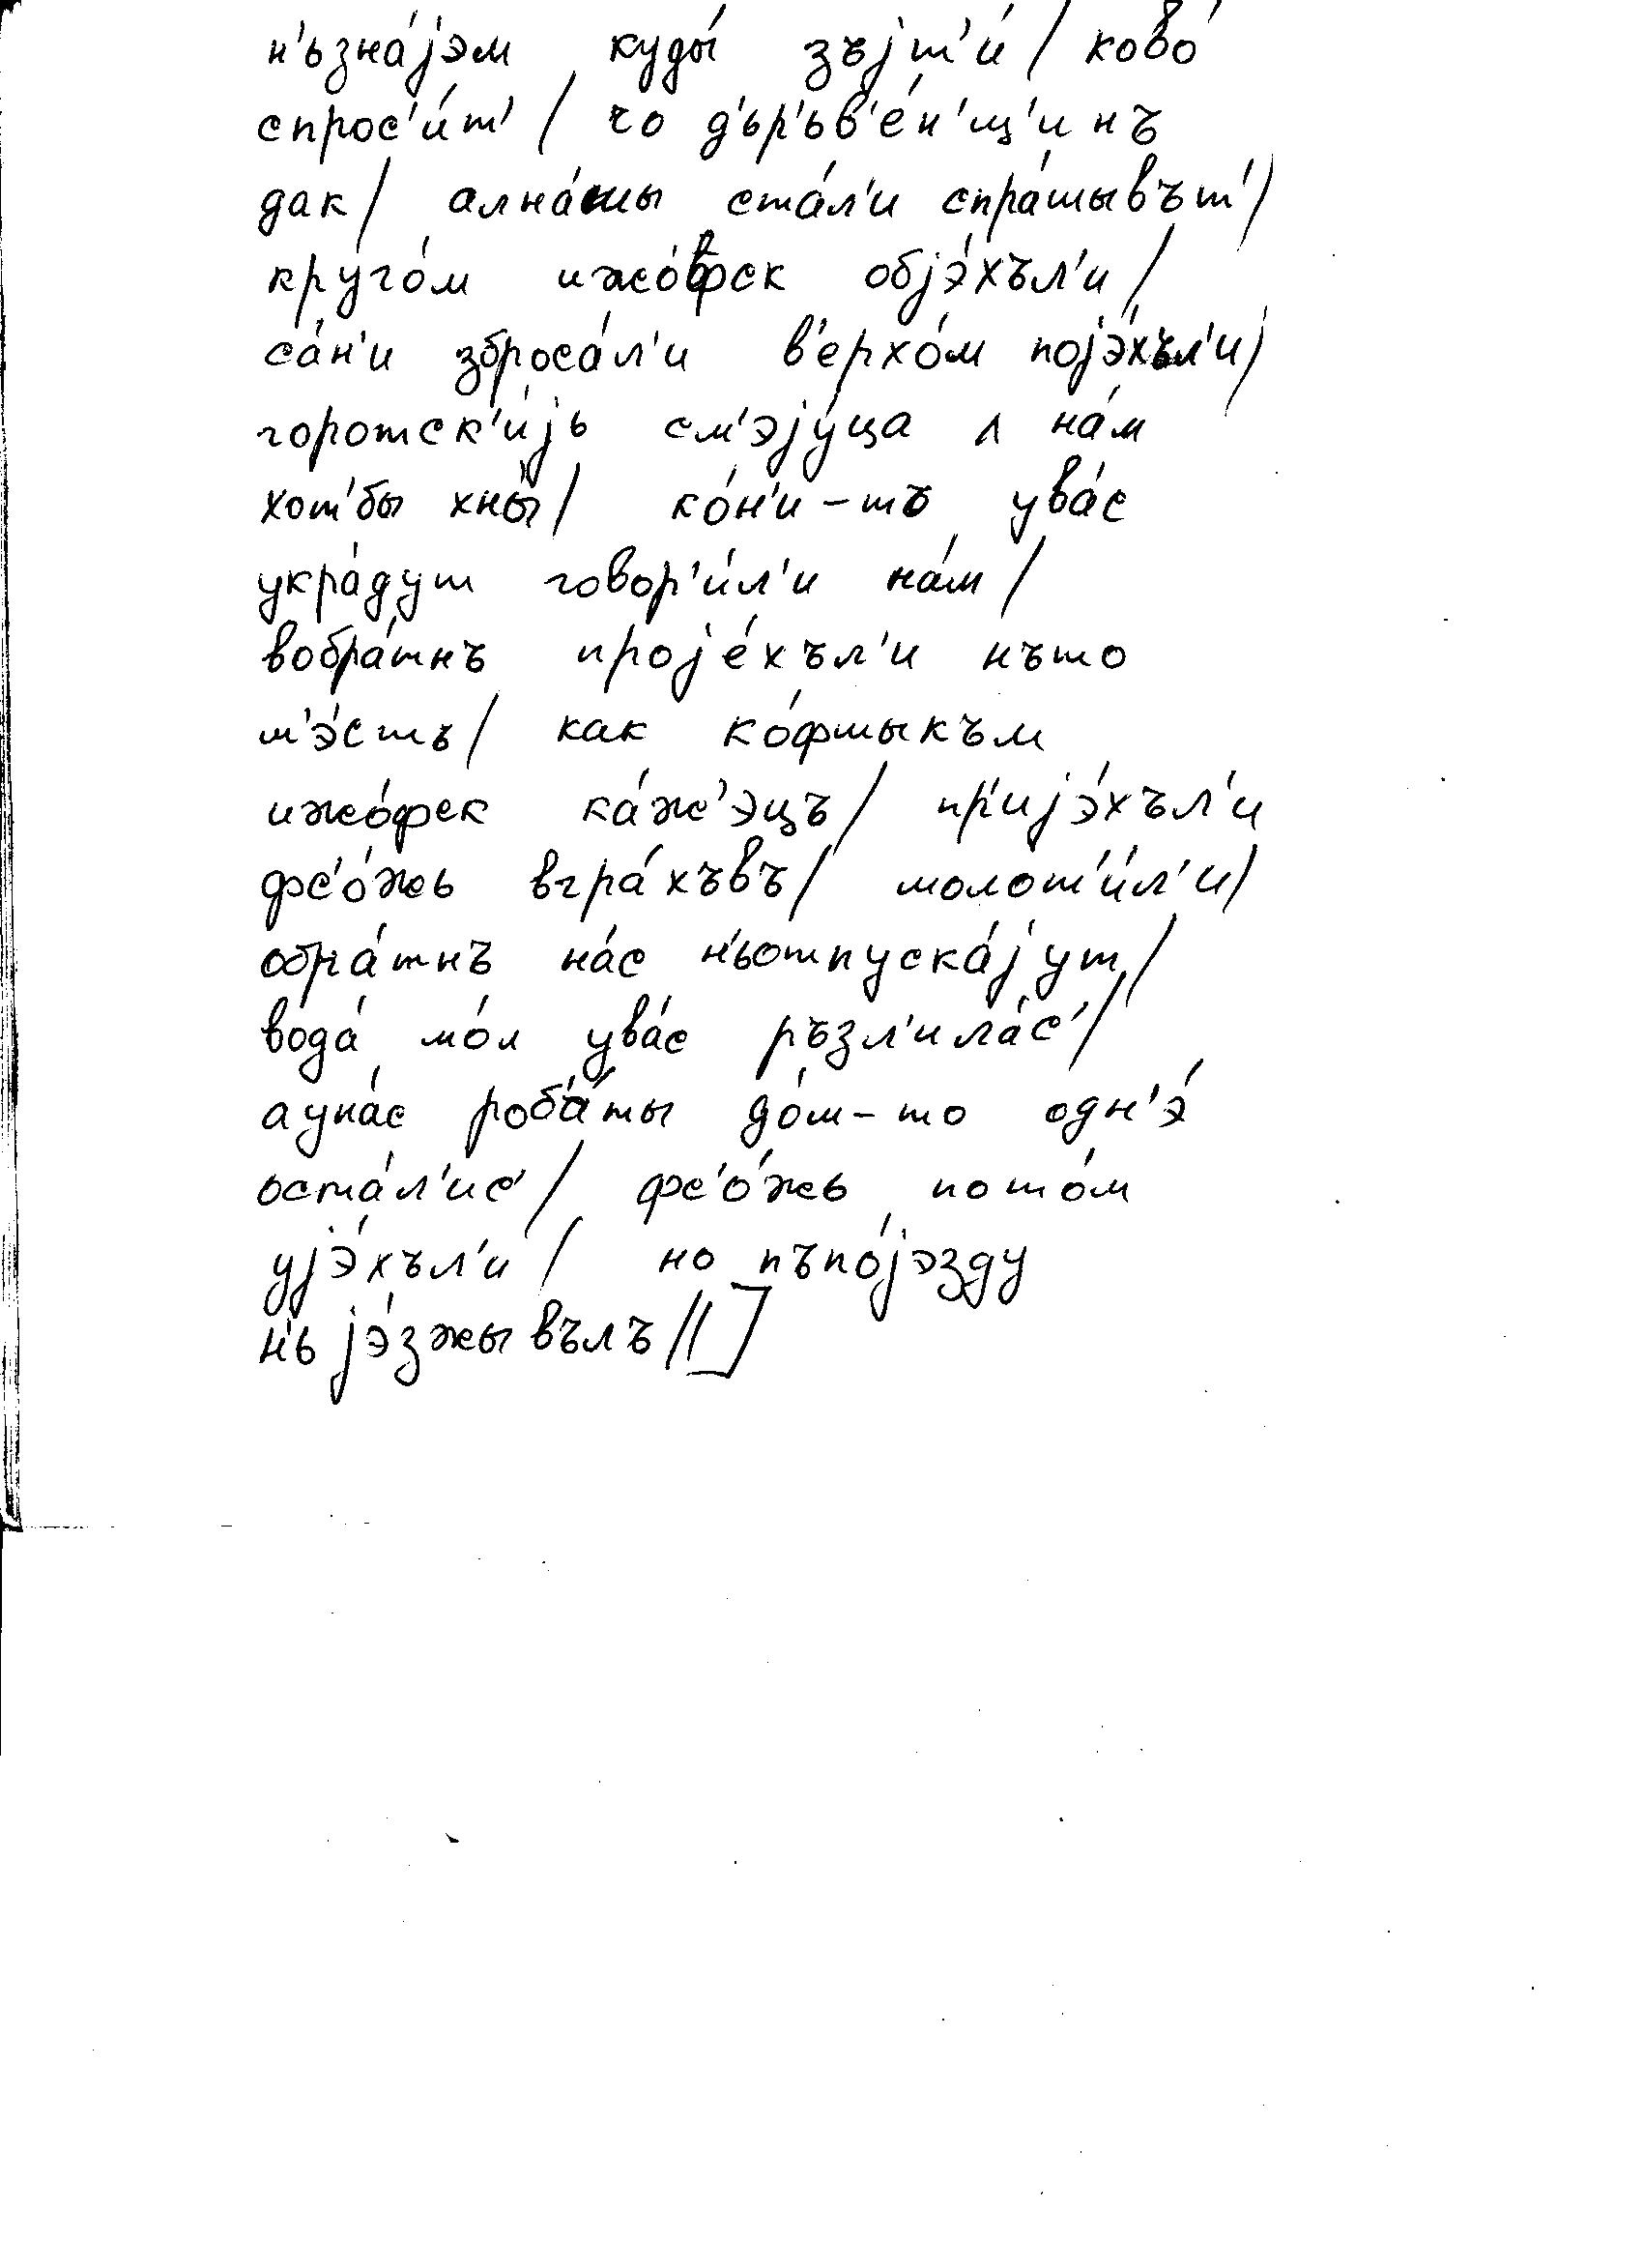 н'ьзна́јэм куды́ зъјт'и́ / ково́
спрос'и́т' / чо д'ьр'ьв'е́н'щ'инъ
дак / ална́шы ста́л'и спра́шывът' /
круго́м ижо́фск објэ́хъл'и /
са́н'и зброса́л'и в'ерхо́м појэ́хъл'и /
горотск'и́јь см'эју́ца л на́м
хот'бы хны́ / ко́н'и-тъ ува́с
укра́дут говор'и́л'и на́м /
вобра́тнъ проје́хъл'и нъто
м'э́стъ / как ко́фшыкъм
ижо́фск ка́ж'эцъ / пр'ијэ́хъл'и
фс'о́жь вгра́хъвъ / молот'и́л'и /
обра́тнъ на́с н'ьотпуска́јут /
вода́ мо́л ува́с ръзл'ила́с' /
ауна́с роба́ты до́м-то одн'э́
оста́л'ис' / фс'о́жь пото́м
ујэ́хъл'и / но пъпо́јэзду
н'ь јэ́зжывълъ // ]